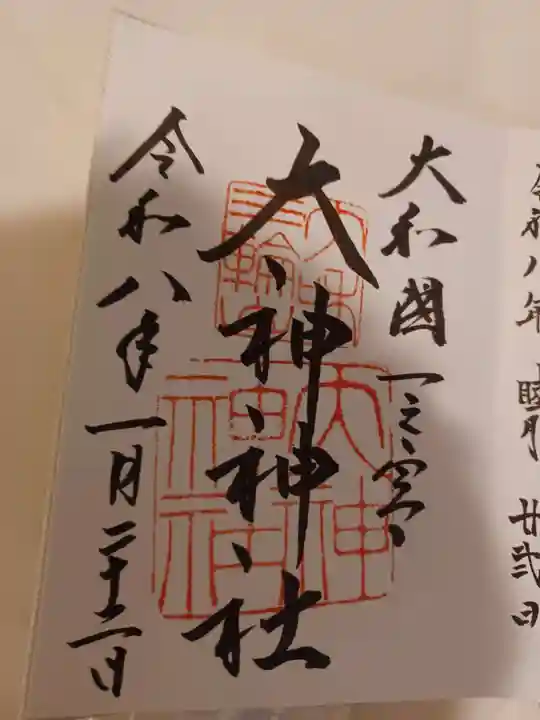 令和八年 睦月 廿弐日
大和國一之宮
大神神社
大神神社
令和八年一月二十二日